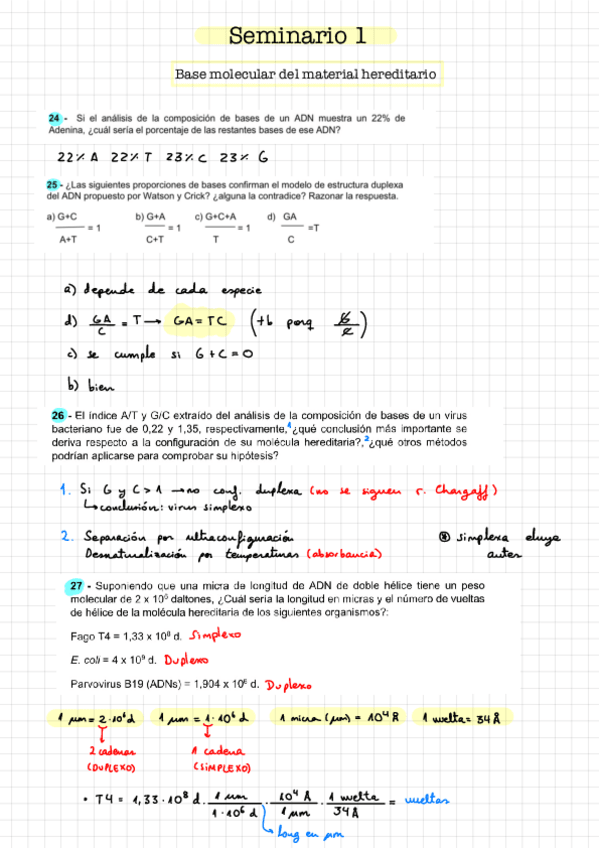 Seminario 1
Base molecular del material hereditario
24 - Si el análisis de la composición de bases de un ADN muestra un 22% de
Adenina, ¿cuál sería el porcentaje de las restantes bases de ese ADN?
22% A 22% T 23% C 23% G
25 - ¿Las siguientes proporciones de bases confirman el modelo de estructura duplexa
del ADN propuesto por Watson y Crick? ¿alguna la contradice? Razonar la respuesta.
a) G+C b) G+A c) G+C+A d) GA
= 1 = 1 = 1 =T
A+T C+T T C
a) depende de cada especie
d) GA/C = T → GA = TC (tb porq G/C)
c) se cumple si G + C = 0
b) bien
26 - El índice A/T y G/C extraído del análisis de la composición de bases de un virus
bacteriano fue de 0,22 y 1,35, respectivamente,¹¿qué conclusión más importante se
deriva respecto a la configuración de su molécula hereditaria?,²¿qué otros métodos
podrían aplicarse para comprobar su hipótesis?
1. Si G y C > 1 → no conf. duplexa (no se siguen r. Chargaff)
↳ conclusión: virus simplexo
2. Separación por ultraconfiguración
simplexa eluye
Desnaturalización por temperaturas (absorbancia)
antes
27 - Suponiendo que una micra de longitud de ADN de doble hélice tiene un peso
molecular de 2 x 10⁶ daltones, ¿Cuál sería la longitud en micras y el número de vueltas
de hélice de la molécula hereditaria de los siguientes organismos?:
Fago T4 = 1,33 x 10⁸ d. Simplexo
E. coli = 4 x 10⁹ d. Duplexo
Parvovirus B19 (ADNs) = 1,904 x 10⁶ d. Duplexo
1 μm = 2·10⁶ d 1 μm = 1·10⁶ d 1 micra (μm) = 10⁴ Å 1 vuelta = 34 Å
2 cadenas 1 cadena
(DUPLEXO) (SIMPLEXO)
• T4 = 1,33·10⁸ d · 1 μm / 1·10⁶ d · 10⁴ Å / 1 μm · 1 vuelta / 34 Å = vueltas
long en μm